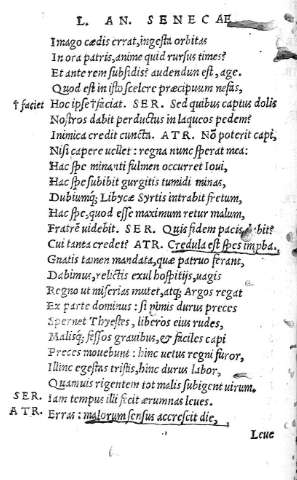 L. AN. SENECAE
Imago cædis errat, ingesta orbitas
In ora patris, anime quid rursus times?
Et ante rem subsidis? audendum est, age.
Quod est in isto scelere præcipuum nefas,
† faciet Hoc ipse†faciat. SER. Sed quibus captus dolis
Nostros dabit perductus in laqueos pedem?
Inimica credit cuncta. ATR. Nō poterit capi,
Nisi capere vellet: regna nunc sperat mea:
Hac spe minanti fulmen occurret Iovi,
Hac spe subibit gurgitis tumidi minas,
Dubiumq; Libycæ Syrtis intrabit fretum,
Hac spe, quod esse maximum retur malum,
Fratrē videbit. SER. Quis fidem pacis
Cui tanta credet? ATR. Credula est spes impba.
Gnatis tamen mandata, quæ patruo ferant,
Dabimus, relictis exul hospitijs, vagis
Regno ut miserias mutet, atq; Argos regat
Ex parte dominus: si nimis durus preces
Spernet Thyestes, liberos eius rudes,
Malisq; fessos gravibus, & faciles capi
Preces movebunt: hinc vetus regni furor,
Illinc egestas tristis, hinc durus labor,
Quamvis rigentem tot malis subigent virum.
SER. Iam tempus illi fecit ærumnas leves.
ATR. Erras: malorum sensus accrescit die,
Leve